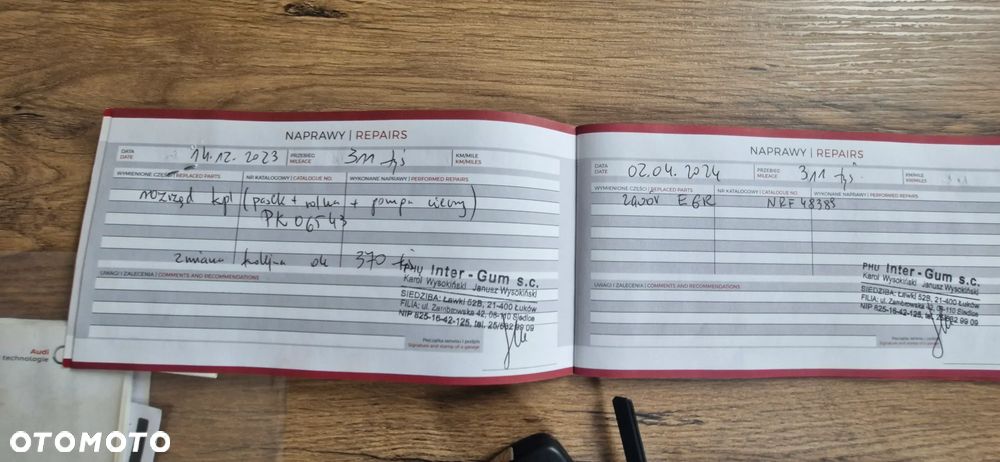 NAPRAWY | REPAIRS
DATA
DATE
14.12.2023
PRZEBIEG
MILEAGE
311 tyś
KM/MILE
KM/MILES
WYMIENIONE CZĘŚCI | REPLACED PARTS
NR KATALOGOWY | CATALOGUE NO.
WYKONANE NAPRAWY | PERFORMED REPAIRS
rozrząd kpl (pasek + rolka + pompa cieczy)
PK06543
zmiana kolejna ok 370 tyś
UWAGI I ZALECENIA | COMMENTS AND RECOMMENDATIONS
PHU Inter-Gum s.c.
Karol Wysokiński Janusz Wysokiński
SIEDZIBA: Ławki 52B, 21-400 Łuków
FILIA: ul. Zambrowska 42, 08-110 Siedlce
NIP 825-16-42-125, tel. 25/682 99 09
Pieczątka serwisu i podpis
Signature and stamp of a garage
NAPRAWY | REPAIRS
DATA
DATE
02.04.2024
PRZEBIEG
MILEAGE
311 tyś
WYMIENIONE CZĘŚCI | REPLACED PARTS
NR KATALOGOWY | CATALOGUE NO.
WYKONANE NAPRAWY | PERFORMED REPAIRS
zawór EGR
NRF 48383
UWAGI I ZALECENIA | COMMENTS AND RECOMMENDATIONS
PHU Inter-Gum s.c.
Karol Wysokiński Janusz Wysokiński
SIEDZIBA: Ławki 52B, 21-400 Łuków
FILIA: ul. Zambrowska 42, 08-110 Siedlce
NIP 825-16-42-125, tel. 25/682 99 09
Audi
technologie
OTOMOTO